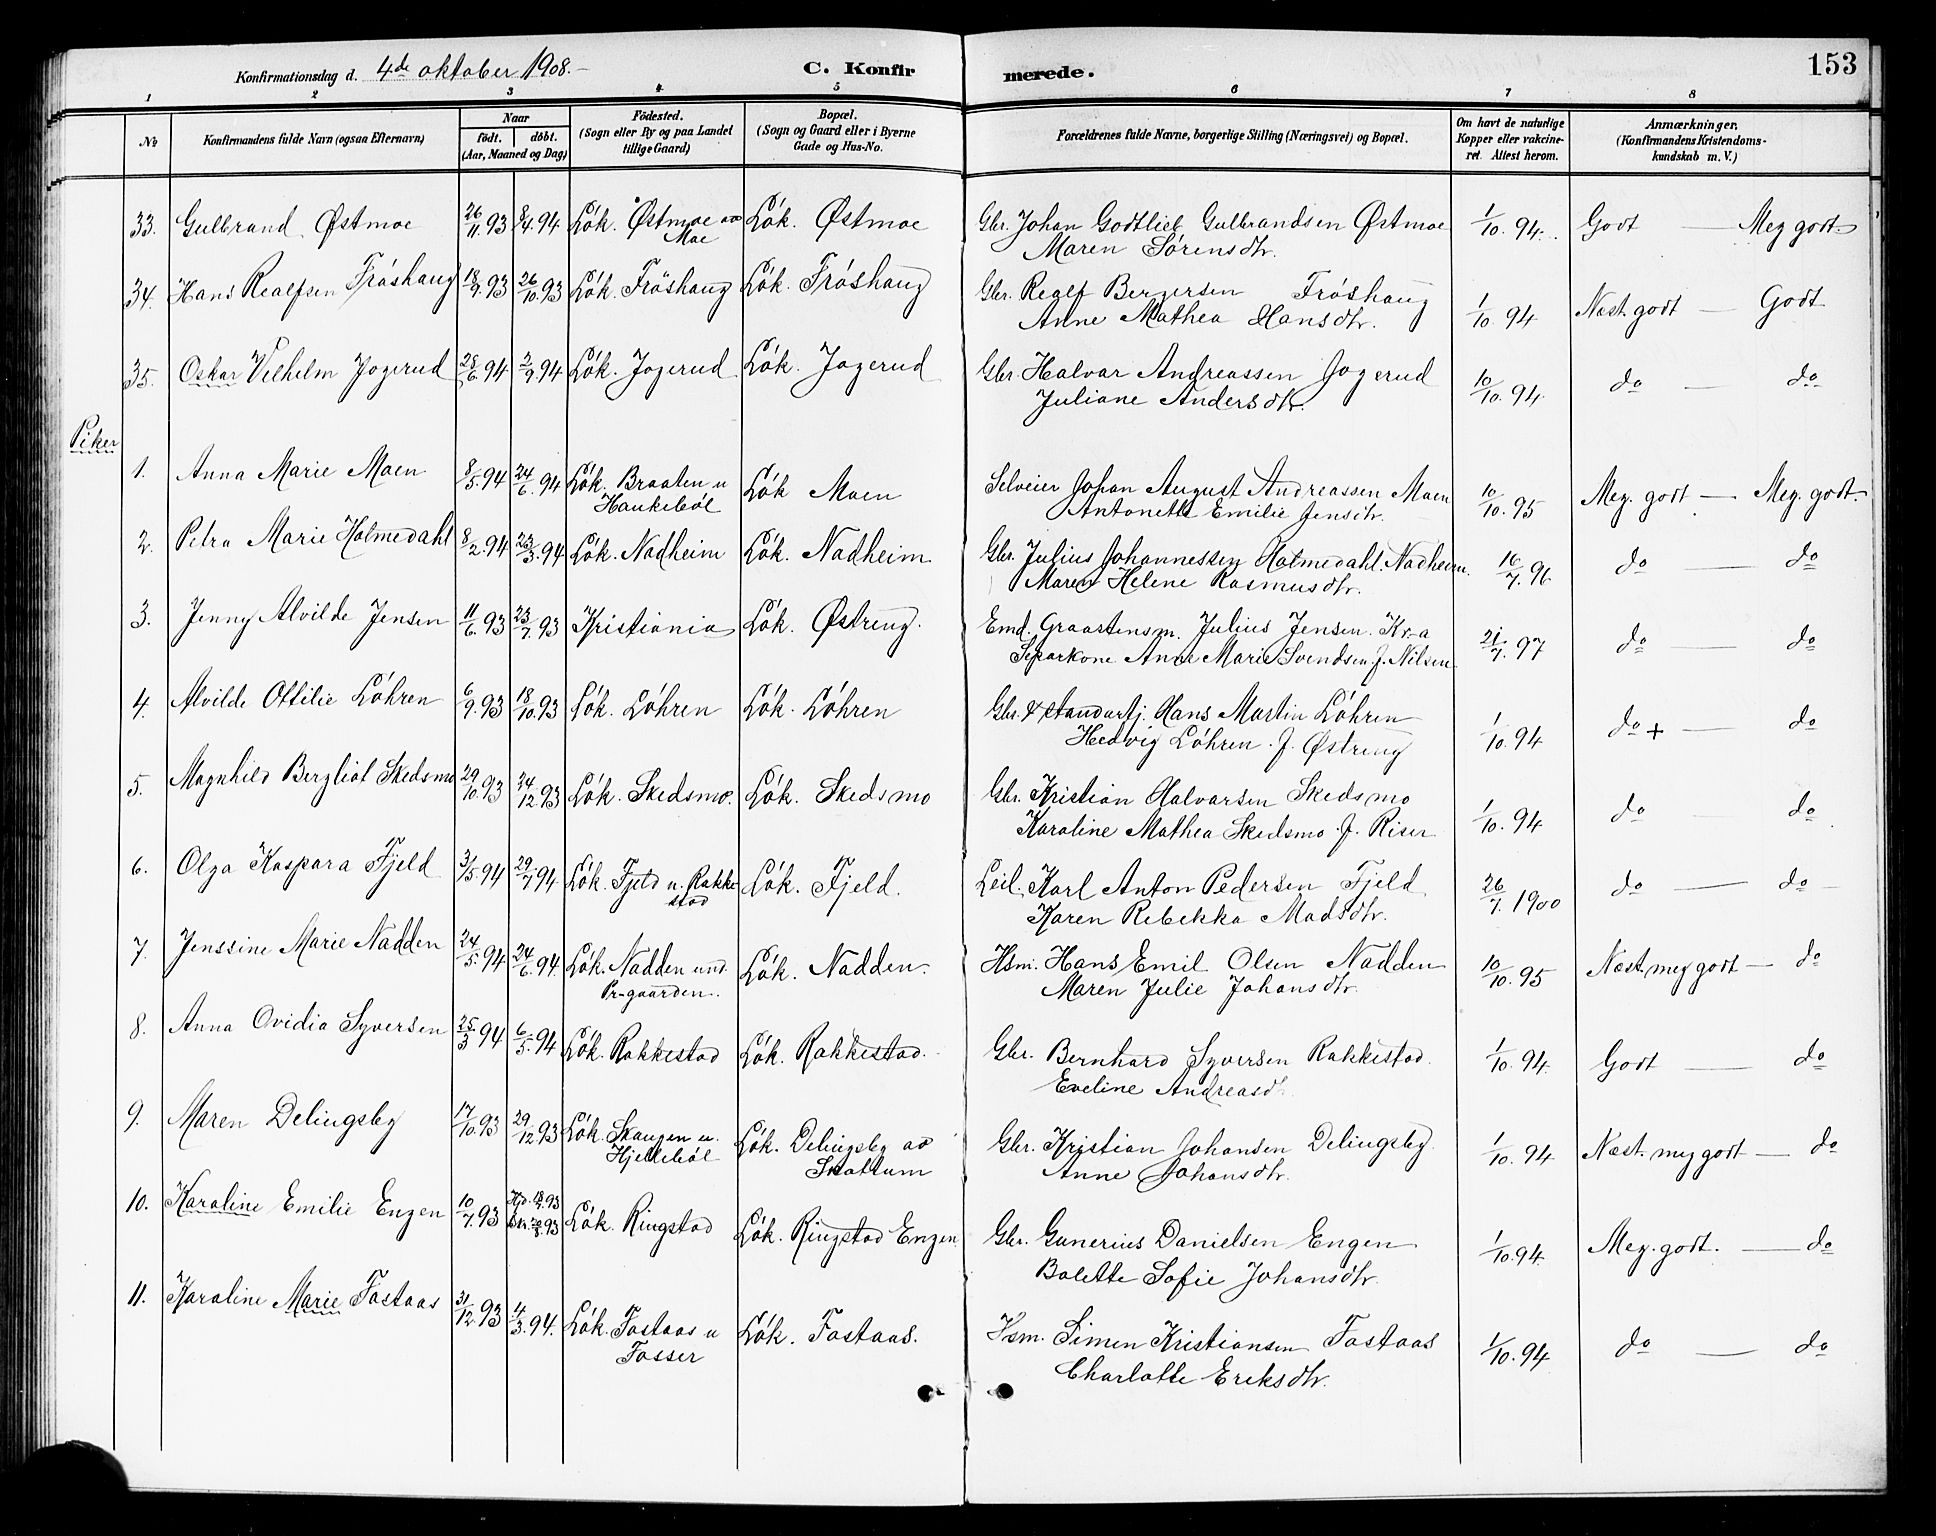 Konfirmationsdag d. 4de oktober 1908.–
C. Konfirmerede.
153
1 2 3 4 5 6 7 8
No
Konfirmandens fulde Navn (ogsaa Efternavn)
Naar
født. døbt.
(Aar, Maaned og Dag)
Fødested.
(Sogn eller By og paa Landet tillige Gaard)
Bopæl.
(Sogn og Gaard eller i Byerne Gade og Hus-No.
Forældrenes fulde Navne, borgerlige Stilling (Næringsvei) og Bopæl.
Om havt de naturlige Kopper eller vakcineret. Attest herom.
Anmærkninger.
(Konfirmandens Kristendomskundskab m. V.)
33. Gulbrand Østmoe 26/11.93 8/4.94 Løk. Østmoe av Moe Løk. Østmoe Gbr. Johan Godtlieb Gulbrandsen Østmoe 1/10.94. Godt — Meg godt
Maren Sørensdtr.
34. Hans Realfsen Frøshaug 18/9.93 26/10.93 Løk. Frøshaug Løk. Frøshaug Gbr. Realf Bergersen Frøshaug 1/10.94 Næst godt — Godt
Anne Mathea Hansdtr.
35. Oskar Vilhelm Jogerud 28/6.94 2/9.94 Løk. Jogerud Løk. Jogerud Gbr. Halvar Andreassen Jogerud 10/10.94 do — do
Juliane Andersdtr.
Piker
1. Anna Marie Moen 8/5.94 24/6.94 Løk. Braaten u Haukebøl Løk Moen Selveier Johan August Andreassen Moen 10/10.95 Meg. godt — Meg. godt
Antonette Emilie Jensdtr.
2. Petra Marie Holmedahl 8/2.94 23/3.94 Løk. Nadheim Løk. Nadheim Gbr. Julius Johannessen Holmedahl. Nadheim. 16/7.96 do — do
Maren Helene Rasmusdtr.
3. Jenny Alvilde Jensen 11/6.93 23/7.93 Kristiania Løk. Østreng. Emd. Graastensm. Julius Jensen. Kr.a 21/7.97 do — do
Separkone Anne Marie Svendsen f. Nilsen
4. Alvilde Ottilie Løhren 6/9.93 18/10.93 Løk. Løhren Løk. Løhren Gbr. & standartj. Hans Martin Løhren 1/10.94 do + — do
Hedvig Løhren. f. Østreng
5. Magnhild Bergliot Skedsmo 29/10.93 24/12.93 Løk. Skedsmo. Løk. Skedsmo Gbr. Kristian Halvarsen Skedsmo 1/10.94 do do
Karoline Mathea Skedsmo. f. Riser
6. Olga Kaspara Fjeld 31/5.94 29/7.94 Løk. Fjeld u. Rakkestad Løk. Fjeld. Leil. Karl Anton Pedersen Fjeld 26/7.1900 do — do
Karen Rebekka Madsdtr.
7. Jenssine Marie Nadden 24/5.94 24/6.94. Løk. Nadden und. Pr-gaarden. Løk. Nadden. Hsm. Hans Emil Olsen Nadden 10/10.95 Næst meg godt — do
Maren Julie Johansdtr.
8. Anna Ovidia Syversen 25/3.94 6/5.94 Løk. Rakkestad Løk. Rakkestad. Gbr. Bernhard Syversen Rakkestad. 1/10.94. Godt — do
Eveline Andreasd
9. Maren Delingsby 17/10.93 29/12.93 Løk. Skaugen u. Hjellebøl Løk. Delingsby av Skallum Gbr. Kristian Johansen Delingsby. 1/10.94 Næst. meg godt — do
Anne Johansdtr.
10. Karoline Emilie Engen 10/7.93 Løk. Ringstad Løk. Ringstad Engen Gbr. Gunerius Danielsen Engen 1/10.94. Meg. godt. — do
Bolette Sofie Johansdtr.
11. Karoline Marie Fostaas 31/12.93 4/3.94. Løk. Fostaas u Fosser Løk. Fostaas. Hsm. Simen Kristiansen Fostaas 1/10.94 do — do
Charlotte Eriksdtr.